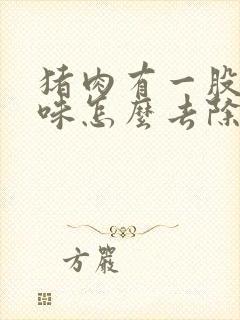 猪肉有一股
味怎麽去除
方嚴